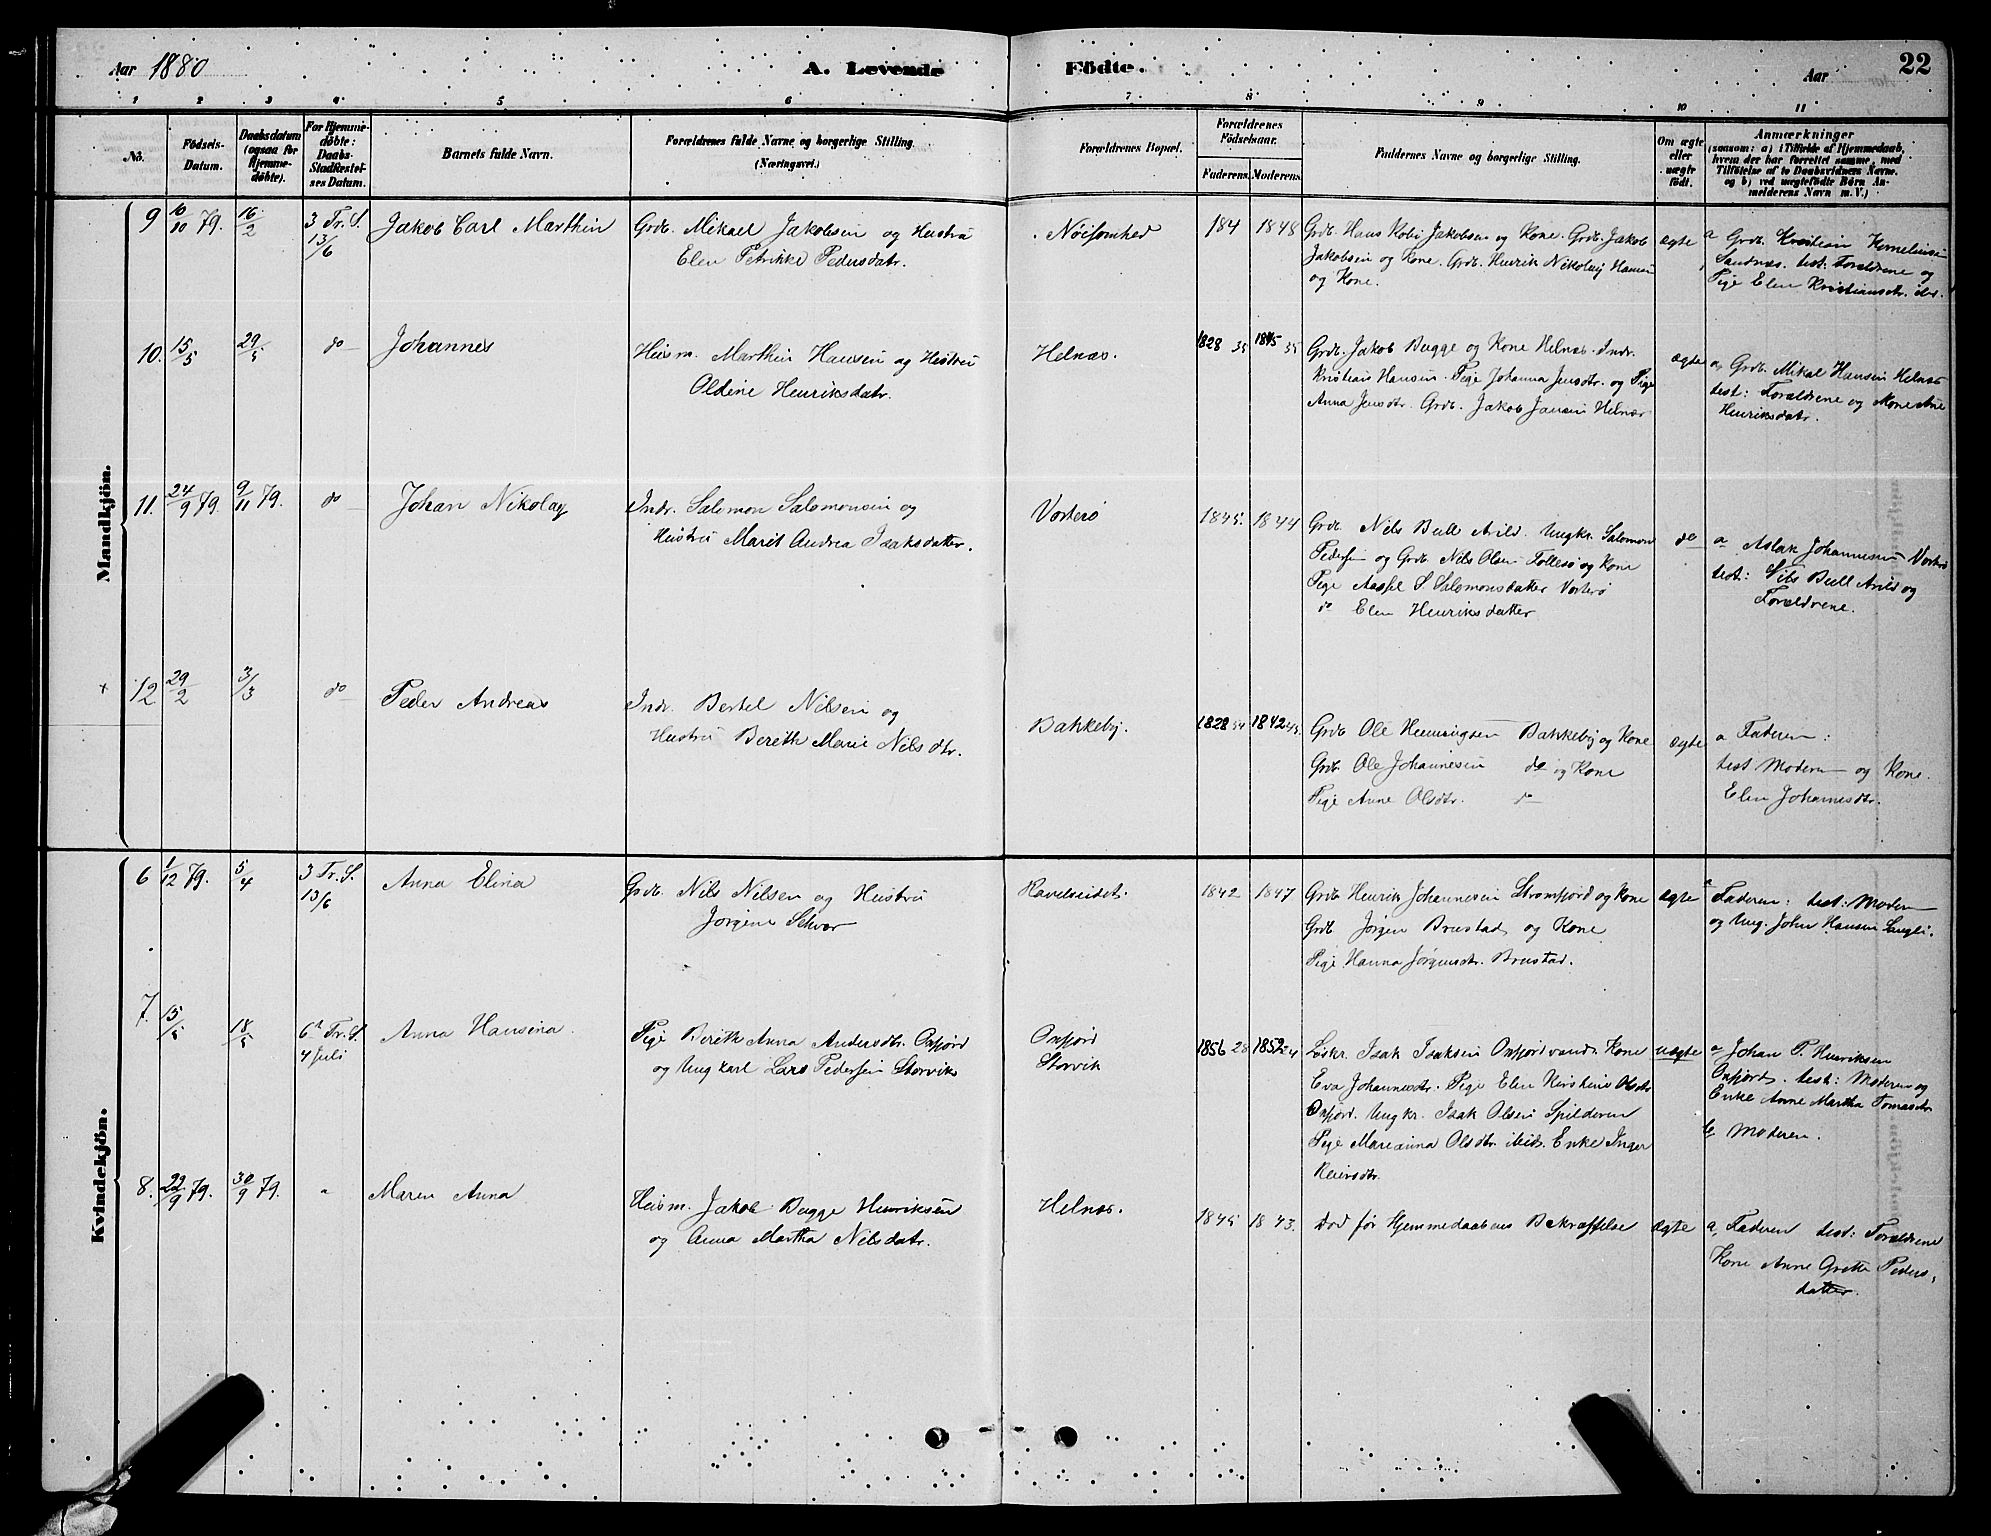 Aar 1880
A. Levende Födte.
Aar
22
1 2 3 4 5 6 7 8 9 10 11
No.
Födsels-Datum.
Daabsdatum (ogsaa for Hjemme-döbte).
For Hjemme-döbte: Daabs-Stadfæstel-ses Datum.
Barnets fulde Navn.
Forældrenes fulde Navne og borgerlige Stilling. (Næringsvei.)
Forældrenes Bopæl.
Forældrenes Födselsaar.
Faderens. Moderens.
Faddernes Navne og borgerlige Stilling.
Om ægte eller uægte födt.
Anmærkninger
(saasom: a) i Tilfælde af Hjemmedaab, hvem der har forrettet samme, med Tilföielse af to Daabsvidners Navne, og b) ved uægtefödte Börn An-melderens Navn m. V.)
Mandkjön.
9 10/10 79. 16/2 3 Tr. S. 13/6 Jakob Carl Marthin
Grdb. Mikael Jakobsen og Hustru
Elen Petrikke Pedersdatr.
184 1848
Grdb. Hans Kobi Jakobsen og Kone. Grdb. Jakob
Jakobsen og Kone. Grdb. Henrik Nikolaj Hansen
og Kone.
ægte
a Grdb. Kristian Kornelius
Sandnæs. test: Forældrene og
Pige Elen Kristiansdtr. ibd.
10. 15/5 29/5 do Johannes
Husm. Marthin Hansen og Hustru
Oldine Henriksdatr.
Helnæs.
1828 35 1845 35
Grdb. Jakob Bugge og Kone Helnæs. Indr.
Kristian Hansen. Pige Johanna Jensdtr. og Pige
Anna Jensdtr. Grdb. Jakob Jansen Helnæs
ægte
a, Grdb. Mikal Hansen Helnæs
test: Forældrene og Kone Ane
Henriksdatr.
11. 24/9 79. 9/11 79. do Johan Nikolay
Indr. Salomon Salomonsen og
Hustru Marit Andrea Isaksdatter.
Vorterö
1845. 1844
Grdb. Nils Bull Arild. Ungkr. Salomon
Pedersen og Grdb. Nils Olsen Follesö og Kone
Pige Aassel S Salomonsdatter Vorterö
do Elen Henriksdatter
do
a Aslak Johannesen Vorterö
test: Nils Bull Arild og
Forældrene.
12 29/2 3/3 do Peder Andreas
Indr. Bertel Nilsen og
Hustru Bereth Marie Nilsdtr.
Bakkeby.
1828 54 1842
Grdb Ole Henningsen Bakkeby og Kone
Grdb. Ole Johannesen do og Kone
Pige Anne Olsdtr. do
ægte
a Faderen:
test Moderen og Kone.
Elen Johannesdtr.
Kvindekjön.
6 1/12 79. 5/4 3 Tr. S. 13/6 Anna Elina
Grdb. Nils Nilsen og Hustru
Jørgine
Ravelseidet.
1842 1847
Grdb Henrik Johannesen Strømfjord og Kone
Grdb Jørgen Brustad og Kone
Pige Hanna Jørgensdtr. Brustad.
ægte
a Faderen: test: Moderen
og Ung. John Hansen
7. 15/5 18/5 6te Tr. S. 4 Juli Anna Hansina.
Pige Bereth Anna Andersdtr. Oxfjord
og Ungkarl Lars Pedersen Storvik
Oxfjord
Storvik
1856 28 1852 24
Løskr. Isak Isaksen Oxfjordvand. Kone
Eva Johannesdtr. Pige Elen Kirstine Olsdtr
Oxfjord. Ungkr. Isak Olsen Spilderen
Pige Marianna Olsdtr. ibid. Enke Inger
Reiersdtr.
uægte
a Johan P. Henriksen
Oxfjord. test: Moderen og
Enke Anne Martha Tomasdtr
b, Moderen.
8. 22/9 79. 30/9 79. Maren Anna
Husm. Jakob Bugge Henriksen
og Anna Martha Nilsdatr.
Helnæs.
1845 1843.
Død før Hjemmedaabens Bekræftelse
ægte
a, Faderen test: Forældrene
Kone Anne Grethe Peders-
datter.